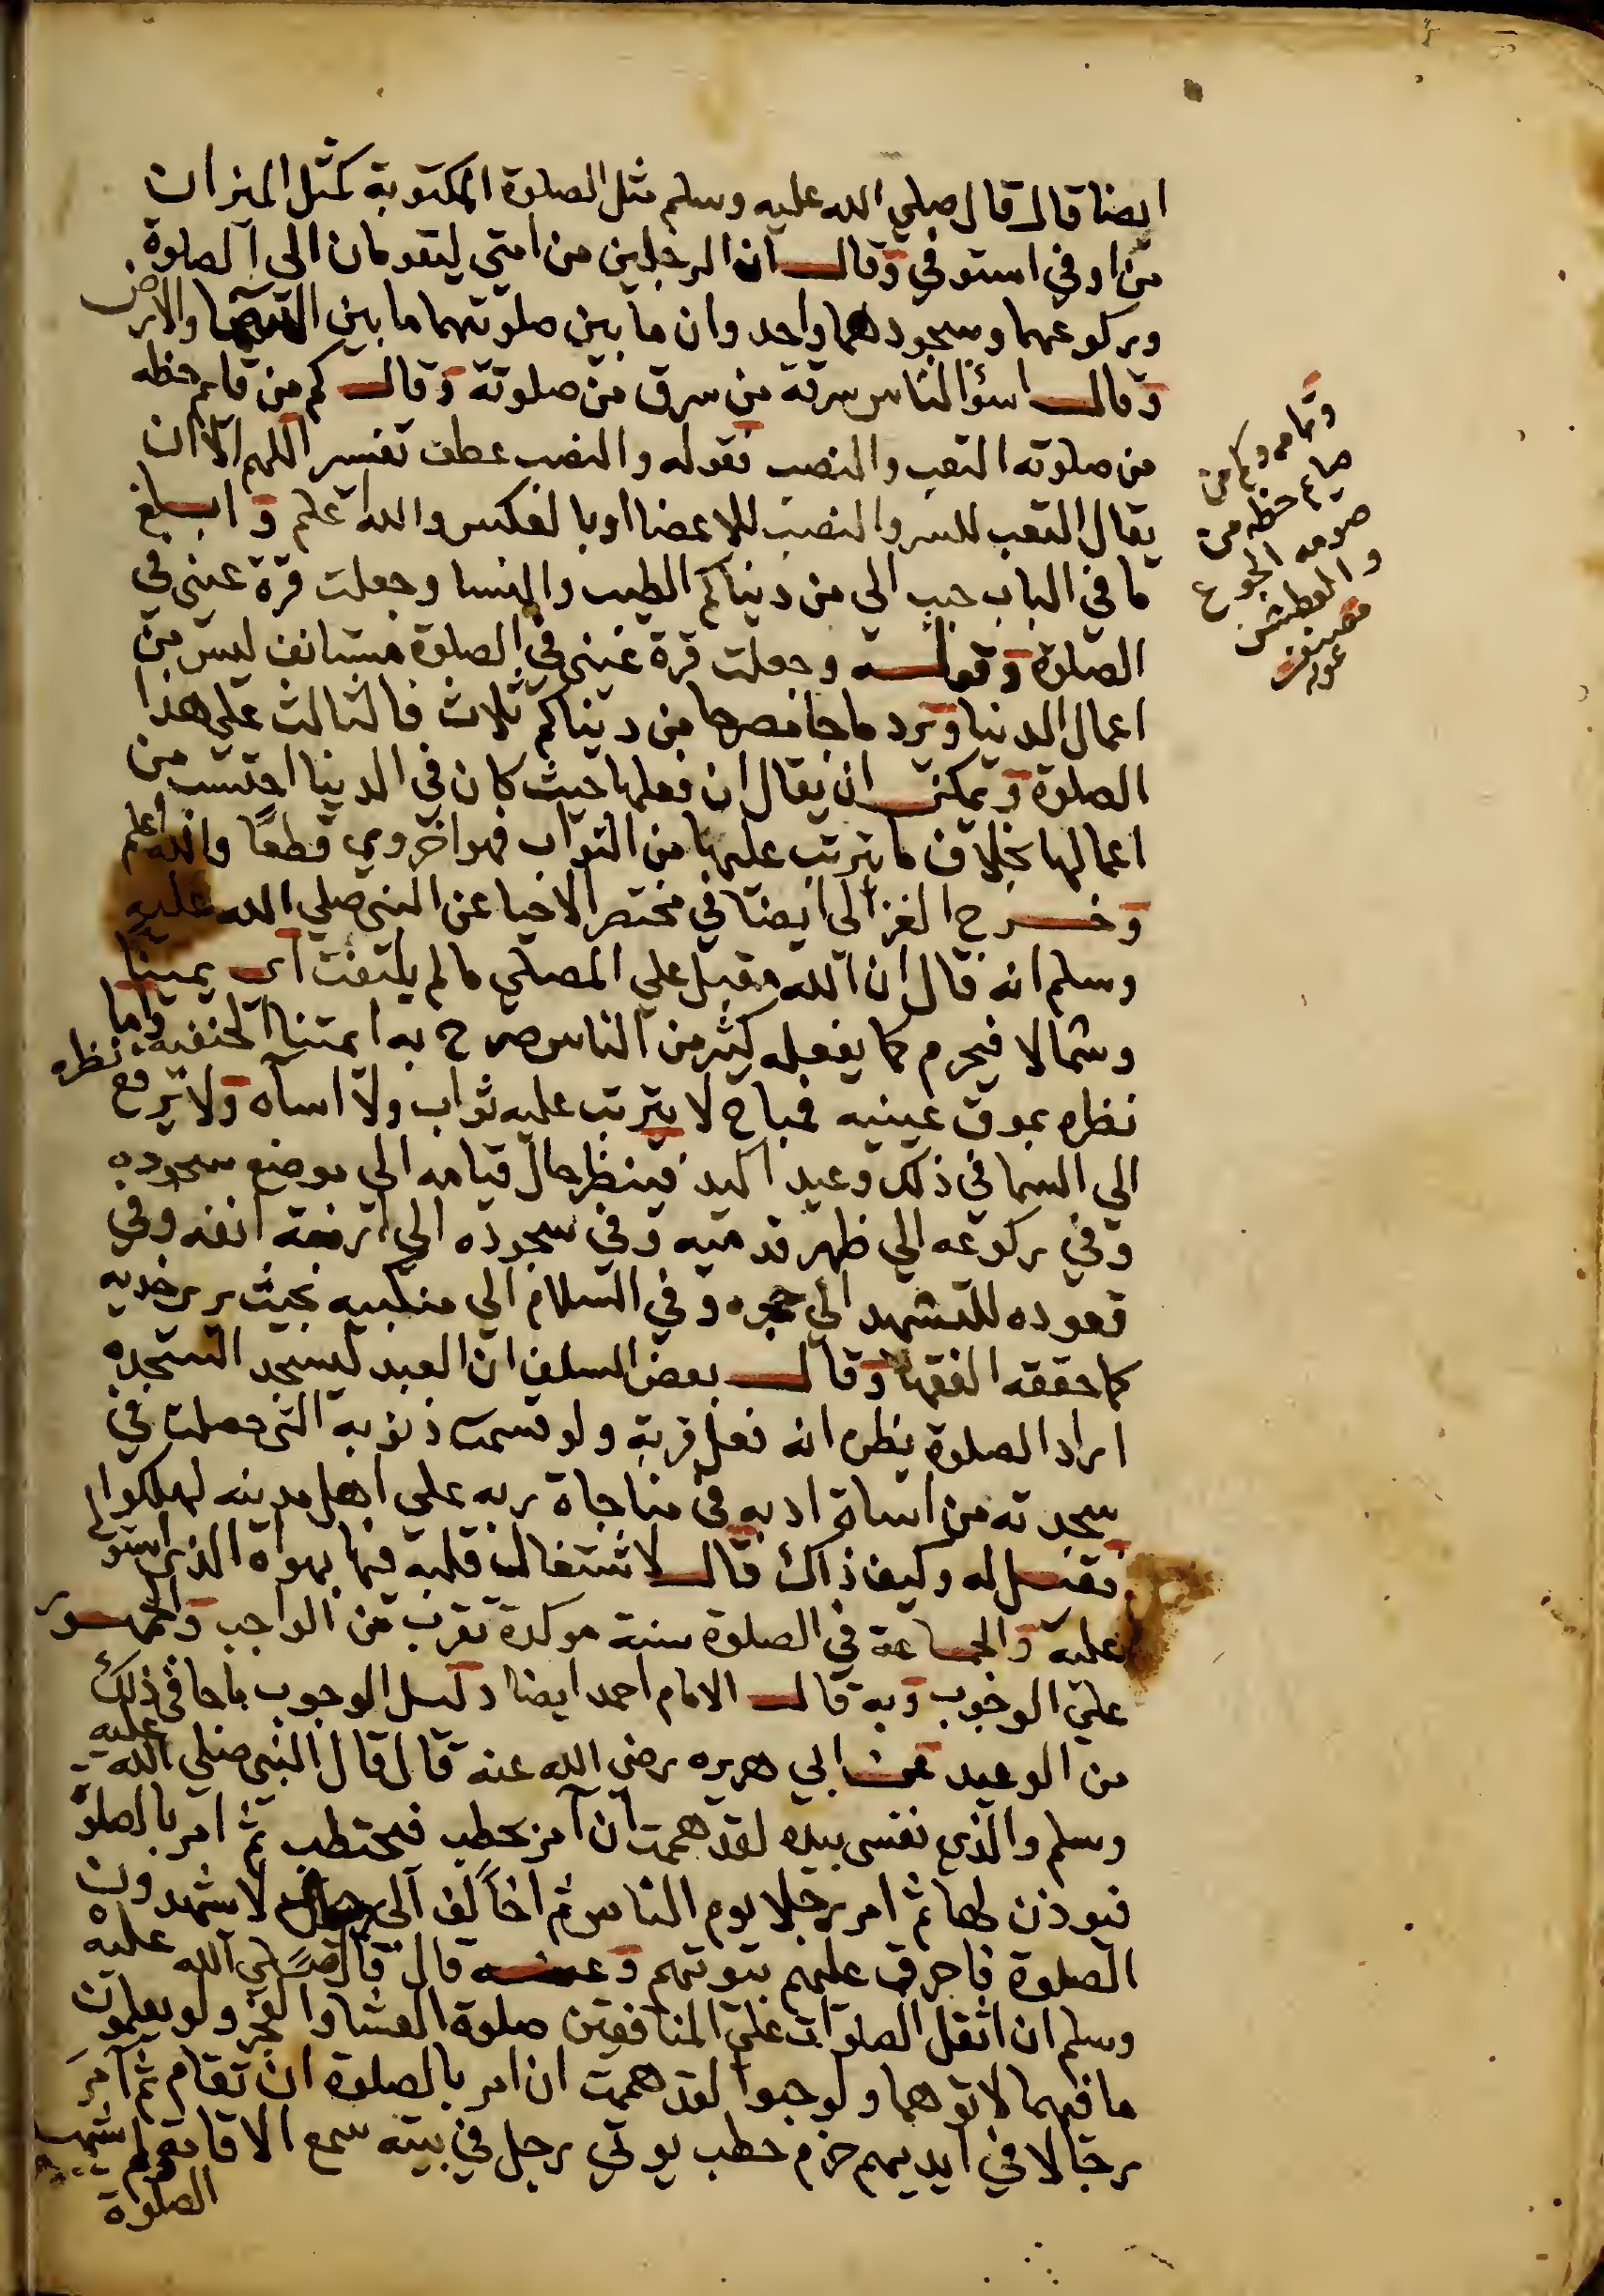 ايضا قال قال صلي الله عليه وسلم مثل الصلوة المكتوبة كمثل الميزان
من اوفي استوفي وقال ان الرجلين من امتي ليقومان الي الصلوة
وركوعهما وسجودهما واحد وان ما بين صلوتهما ما بين السما والارض
وقال اسؤ الناس سرقة من سرق من صلوته وقال كم من قايم حظه
من صلوته التعب والنصب فقوله والنصب عطف تفسير اللهم الا ان
يقال التعب للسر والنصب للاعضا او بالعكس والله اعلم وابلغ
ما في الباب حبب الي من دنياكم الطيب والنسا وجعلت قرة عيني في
الصلوة وقوله وجعلت قرة عيني في الصلوة مستانف ليس من
اعمال الدنيا ويرد ما جا مصرحا من دنياكم ثلاث فالثالث علي هذا
الصلوة ويمكن ان يقال ان فعلها حيث كان في الدنيا احتسب من
اعمالها بخلاف ما يترتب عليها من الثواب فهو اخروي قطعًا والله اعلم
وخرج الغزالي ايضا في مختصر الاحيا عن النبي صلي الله عليه
وسلم انه قال ان الله مقبل علي المصلي ما لم يلتفت اي يمينا
وشمالا فيحرم كما يفعله كثير من الناس صرح به ايمتنا الحنفية واما
نظره بموق عينيه فمباح لا يترتب عليه ثواب ولا اساه ولا يرفع نظره
الي السما في ذلك وعيد اكيد فينظر حال قيامه الي موضع سجوده
وفي ركوعه الي ظهر قدميه وفي سجوده الي ارنبة انفه وفي
قعوده للتشهد الي حجره وفي السلام الي منكبيه بحيث يري خديه
كما حققه الفقها وقال بعض السلف ان العبد ليسجد السجده
اراد الصلوة يظن انه فعل قربة ولو قسمت ذنوبه التي حصلت في
سجدته من اساة ادبه في مناجاة ربه علي اهل مدينه لهلكوا
فقيل له وكيف ذاك قال لاشتغال قلبه فيها بهواه الذي استولي
عليه والجماعة في الصلوة سنة موكدة تقرب من الواجب والجمهور
علي الوجوب وبه قال الامام احمد ايضا دليل الوجوب ما جا في ذلك
من الوعيد عن ابي هريره رضي الله عنه قال قال النبي صلي الله عليه
وسلم والذي نفسي بيده لقد هممت ان آمر بحطب فيحتطب ثم امر بالصلوة
فيوذن لها ثم امر رجلا يوم الناس ثم اخالف الي رجال لا يشهدون
الصلوة فاحرق عليهم بيوتهم وعنه قال قال صلي الله عليه
وسلم ان اثقل الصلوات علي المنافقين صلوة العشا والفجر ولو يعلمون
ما فيهما لاتوهما ولو حبوا لقد هممت ان امر بالصلوة ان تقام ثم آمر
رجالا في ايديهم حزم حطب يوتي رجل في بيته سمع الاقامة لم يشهد
الصلوة
وتمامه وكم من
صايم حظه من
صومه الجوع
والعطش